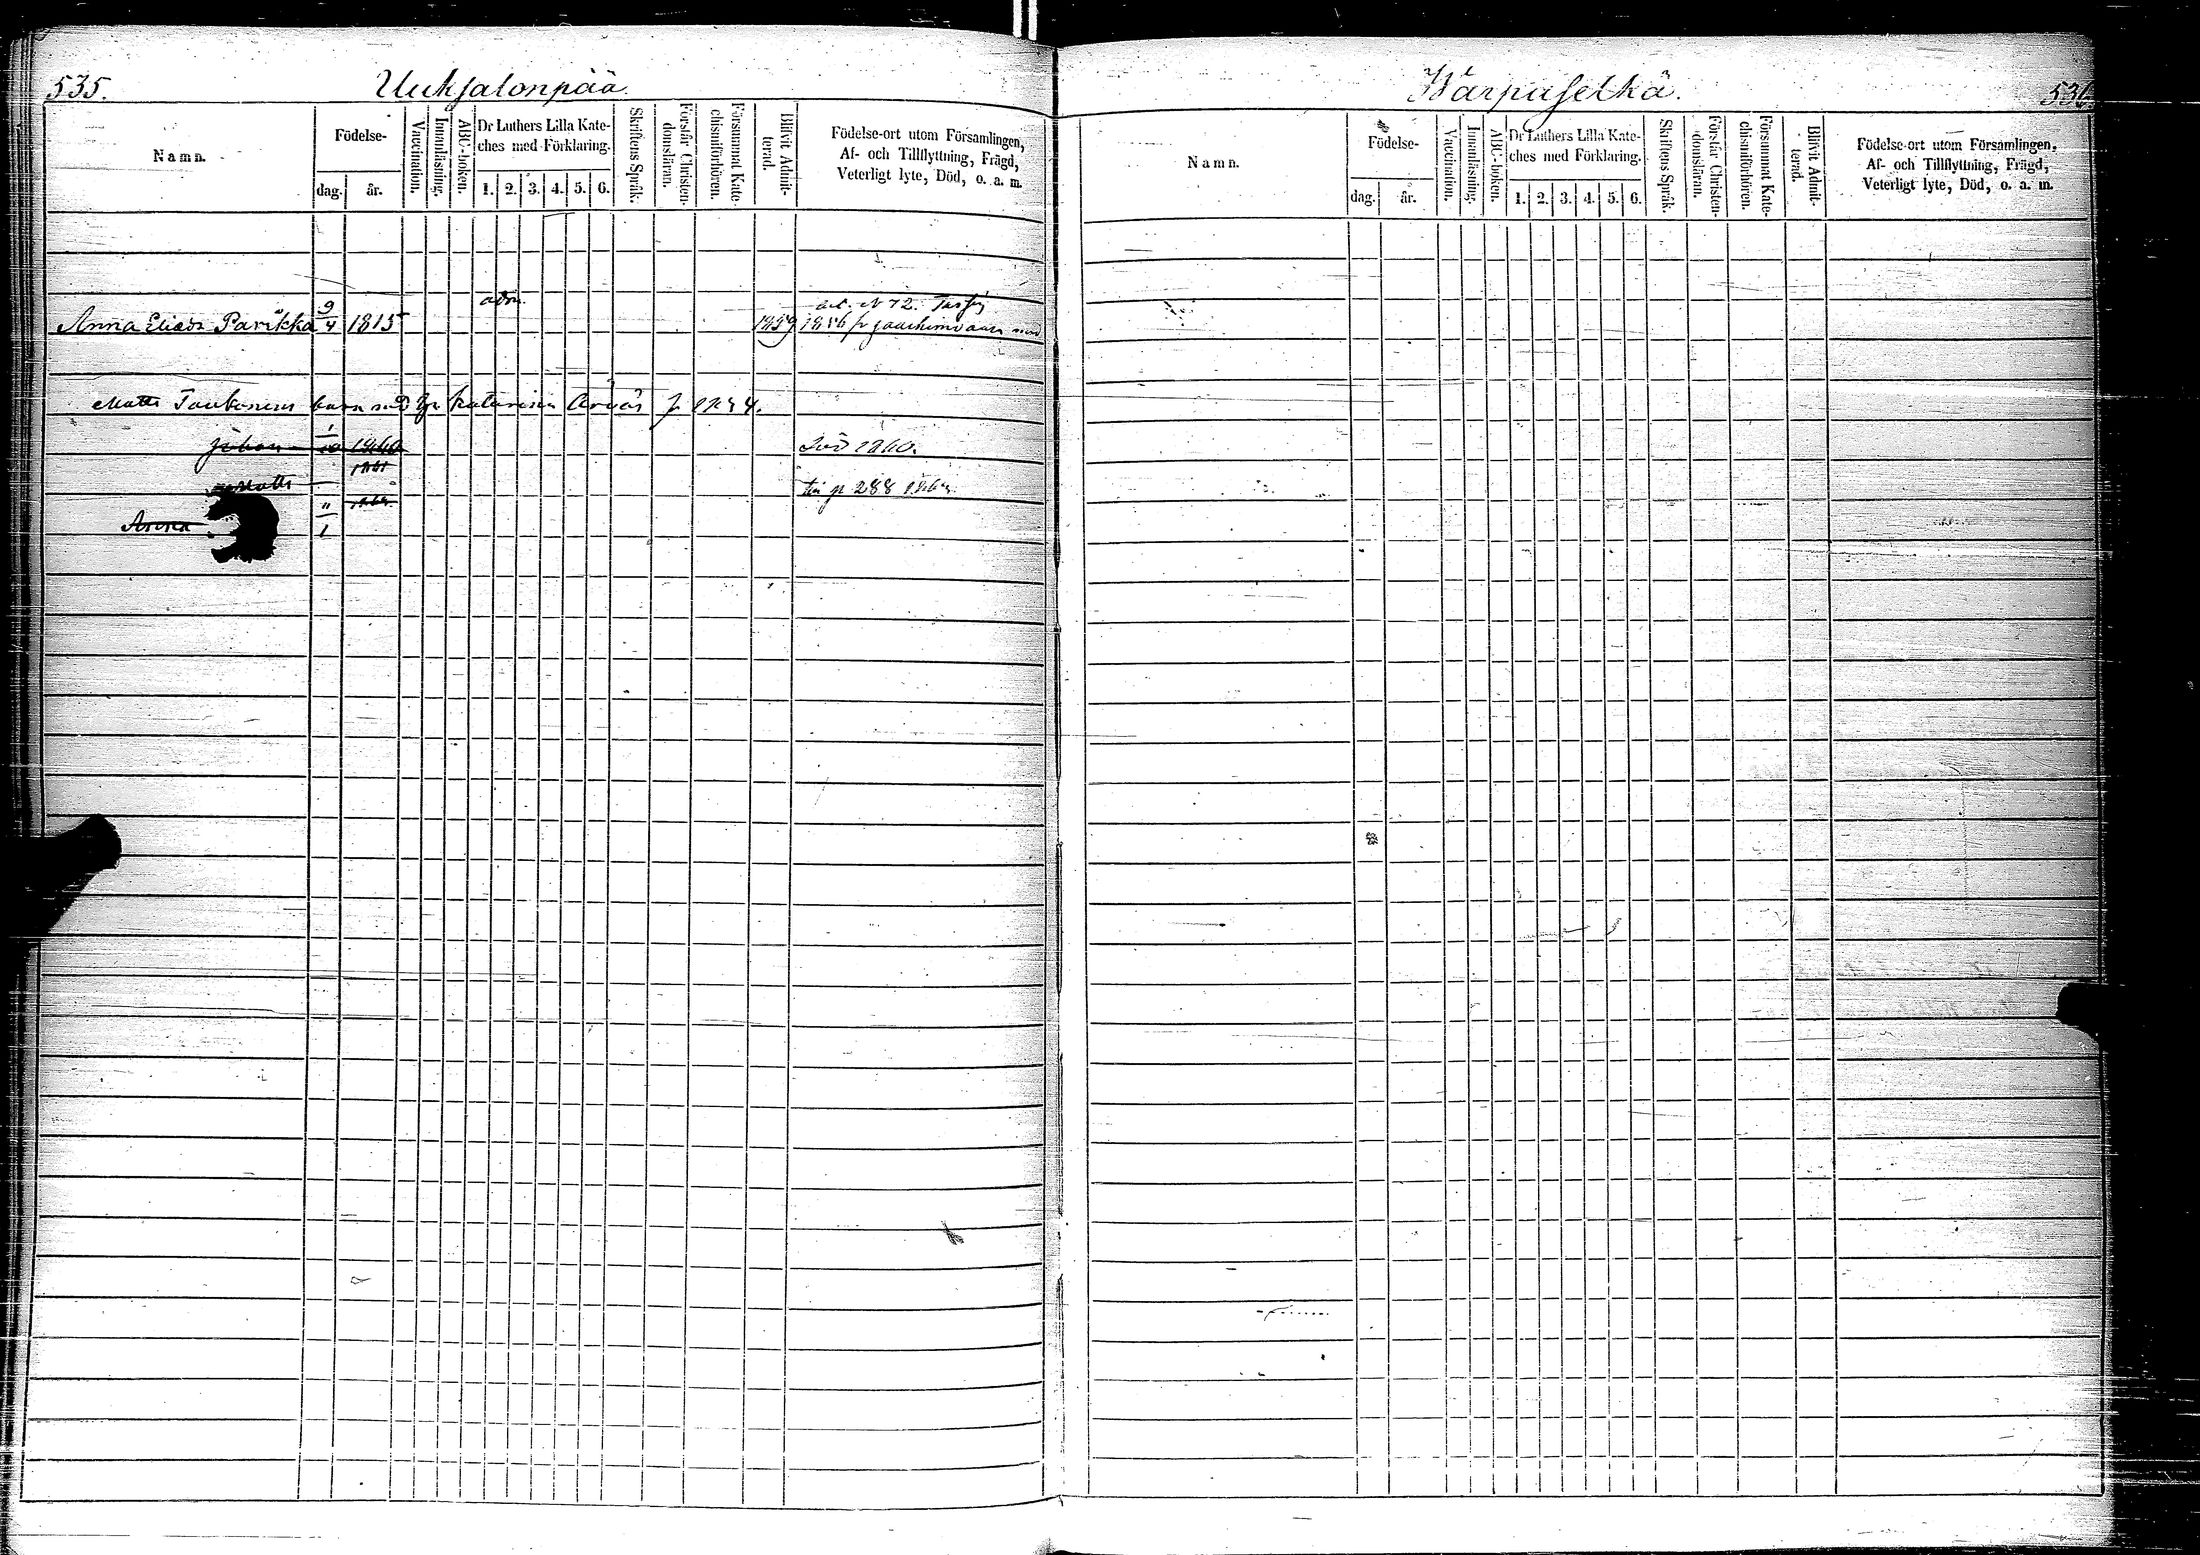 535.
Uuksalonpää.
Namn.
Födelse-
dag.
år.
Vaccination.
Innanläsning.
ABC-boken.
Dr Luthers Lilla Kate-
ches med Förklaring.
1. 2. 3. 4. 5. 6.
Skriftens Språk.
Förstår Christen-
domsläran.
Försummat Kate-
chismiförhören.
Blifvit Admit-
terad.
Födelse-ort utom Församlingen,
Af- och Tillflyttning, Frägd,
Veterligt lyte, Död, o. a. m.
adm.
Anna Eliædr Parikka 9/4 1815 1859 1856 fr
Matts barn med Katarina f. 1834.
Johan 1/10 1860 Död 1860.
1861
Matts 288
Anna 11/1
Wärpuselkä.
536.
Namn.
Födelse-
dag.
år.
Vaccination.
Innanläsning.
ABC-boken.
Dr Luthers Lilla Kate-
ches med Förklaring.
1. 2. 3. 4. 5. 6.
Skriftens Språk.
Förstår Christen-
domsläran.
Försummat Kate-
chismiförhören.
Blifvit Admit-
terad.
Födelse-ort utom Församlingen,
Af- och Tillflyttning, Frägd,
Veterligt lyte, Död, o. a. m.